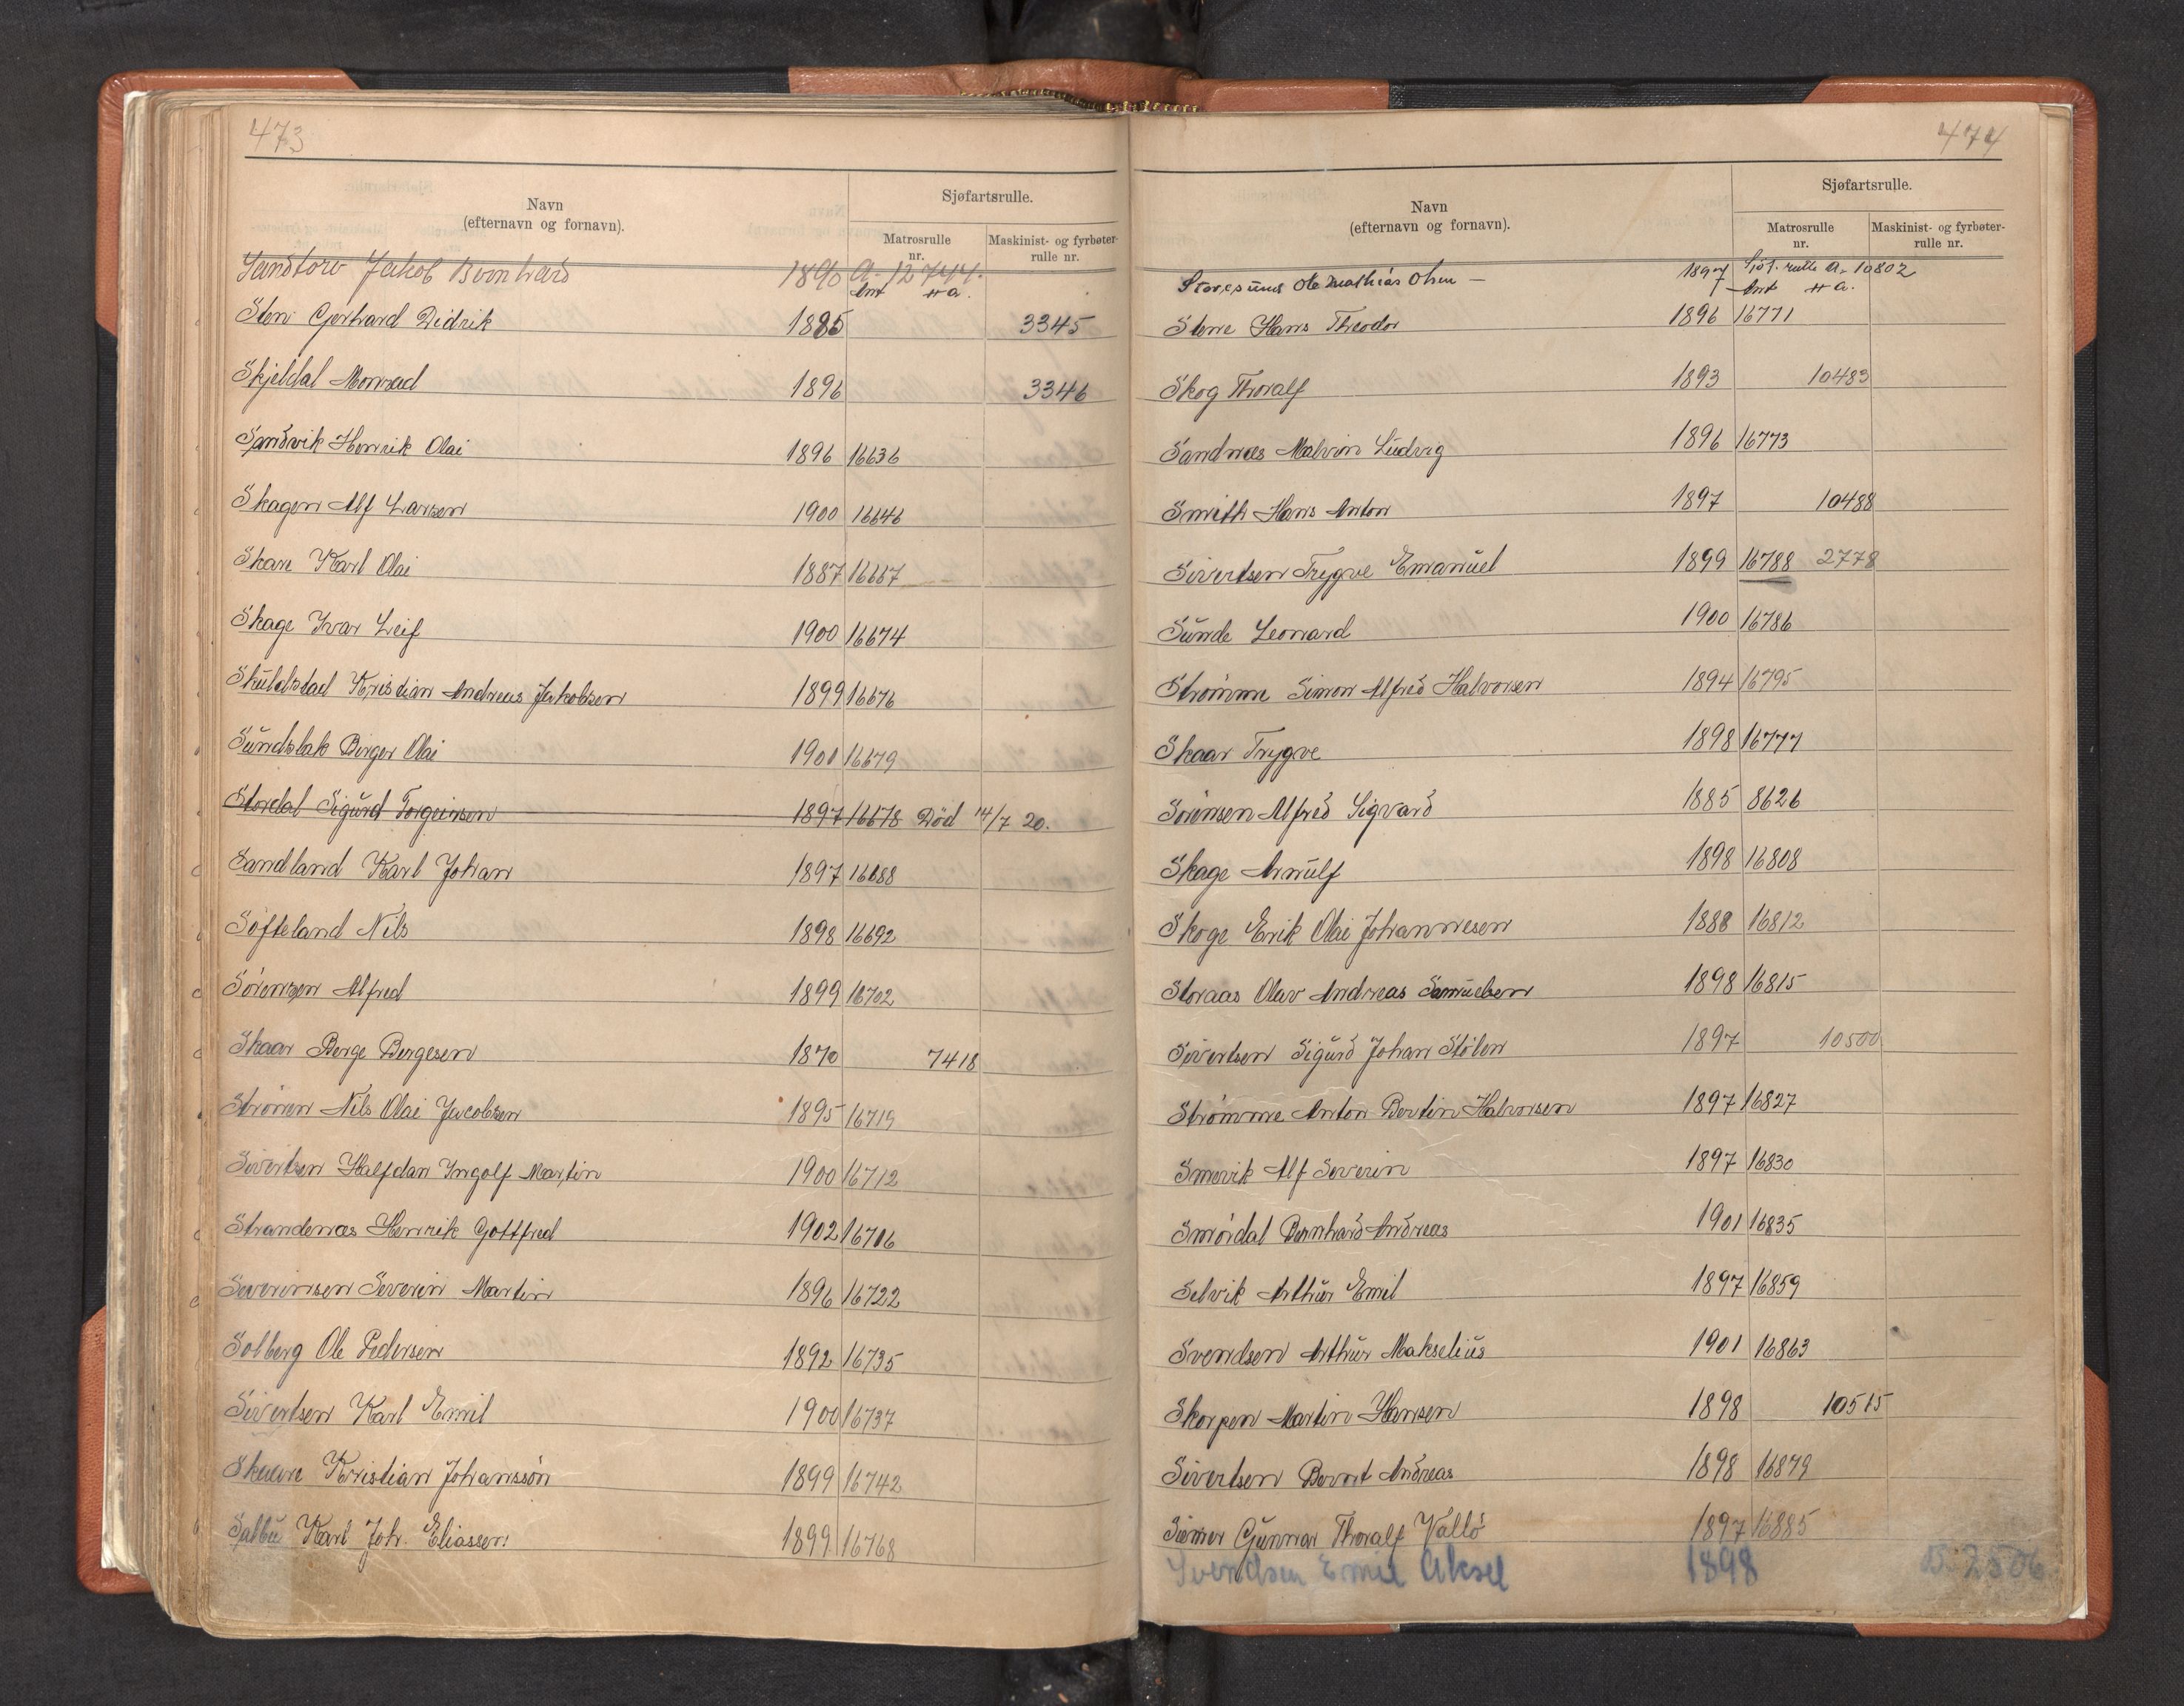 473
Navn
(efternavn og fornavn).
Sjøfartsrulle.
Matrosrulle nr.
Maskinist- og fyrbøter-rulle nr.
Sandtorv Jakob Bernhard 1890 A-12744.
Ant # a.
Sten Gerhard Didrik 1885 3345
Skjeldal Monrad 1896 3346
Sandvik Henrik Olai 1896 16636
Skagen Alf Larsen 1900 16646
Skare Karl Olai 1887 16667
Skage Ivar Leif 1900 16674
Skuldstad Kristian Andreas Jakobsen 1899 16676
Sundsbak Birger Olai 1900 16679
Stordal Sigurd Torgeirsen 1897 16678 Død 14/7 20.
Sandland Karl Johan 1897 16688
Søfteland Nils 1898 16692
Sørensen Alfred 1899 16702
Skaar Berge Bergesen 1870 7418
Strønen Nils Olai Jacobsen 1895 16719
Sivertsen Halfdan Ingolf Martin 1900 16712
Strandenæs Henrik Gottfred 1902 16706
Severinsen Severin Martin 1896 16722
Solberg Ole Pedersen 1892 16735
Sivertsen Karl Emil 1900 16737
Kristian Johanssön 1899 16742
Salbu Karl Joh. Eliassen 1899 16768
474
Navn
(efternavn og fornavn).
Sjøfartsrulle.
Matrosrulle nr.
Maskinist- og fyrbøter-rulle nr.
Storesund Ole Mathias Olsen - 1897 Sjöf. rulle A. 10802
Ant # a.
Stene Hans Theodor 1896 16771
Skog Thoralf 1893 10483
Sandnæs Malvin Ludvig 1896 16773
Smith Hans Anton 1897 10488
Sivertsen Trygve Emanuel 1899 16788 2778
Sunde Leonard 1900 16786
Strømme Simon Alfred Halvorsen 1894 16795
Skaar Trygve 1898 16777
Sørensen Alfred Sigvard 1885 8626
Skage Arnulf 1898 16808
Skoge Erik Olai Johannesen 1888 16812
Storaas Olav Andreas Samuelsen 1898 16815
Sivertsen Sigurd Johan Stølen 1897 10500
Strømme Anton Bertin Halvorsen 1897 16827
Smevik Alf Severin 1897 16830
Smørdal Bernhard Andreas 1901 16835
Selvik Arthur Emil 1897 16859
Svendsen Arthur Makselius 1901 16863
Skorpen Martin Hansen 1898 10515
Sivertsen Bernt Andreas 1898 16879
Gunnar Thoralf Vallö 1897 16885
Svendsen Emil Aksel 1898 B. 2506